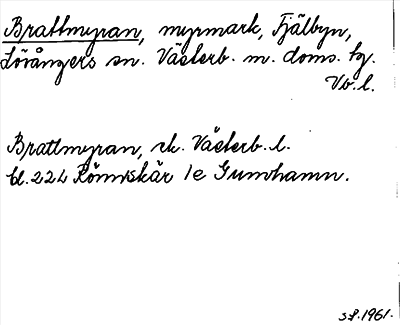 Brattmyran, myrmark, Fjälbyn,
Lövångers sn. Västerb. m. doms. tg.
Vb. l.
Brattmyran, rk. Västerb. l.
bl. 22L Rönnskär 1e Gumhamn.
s.f. 1961.